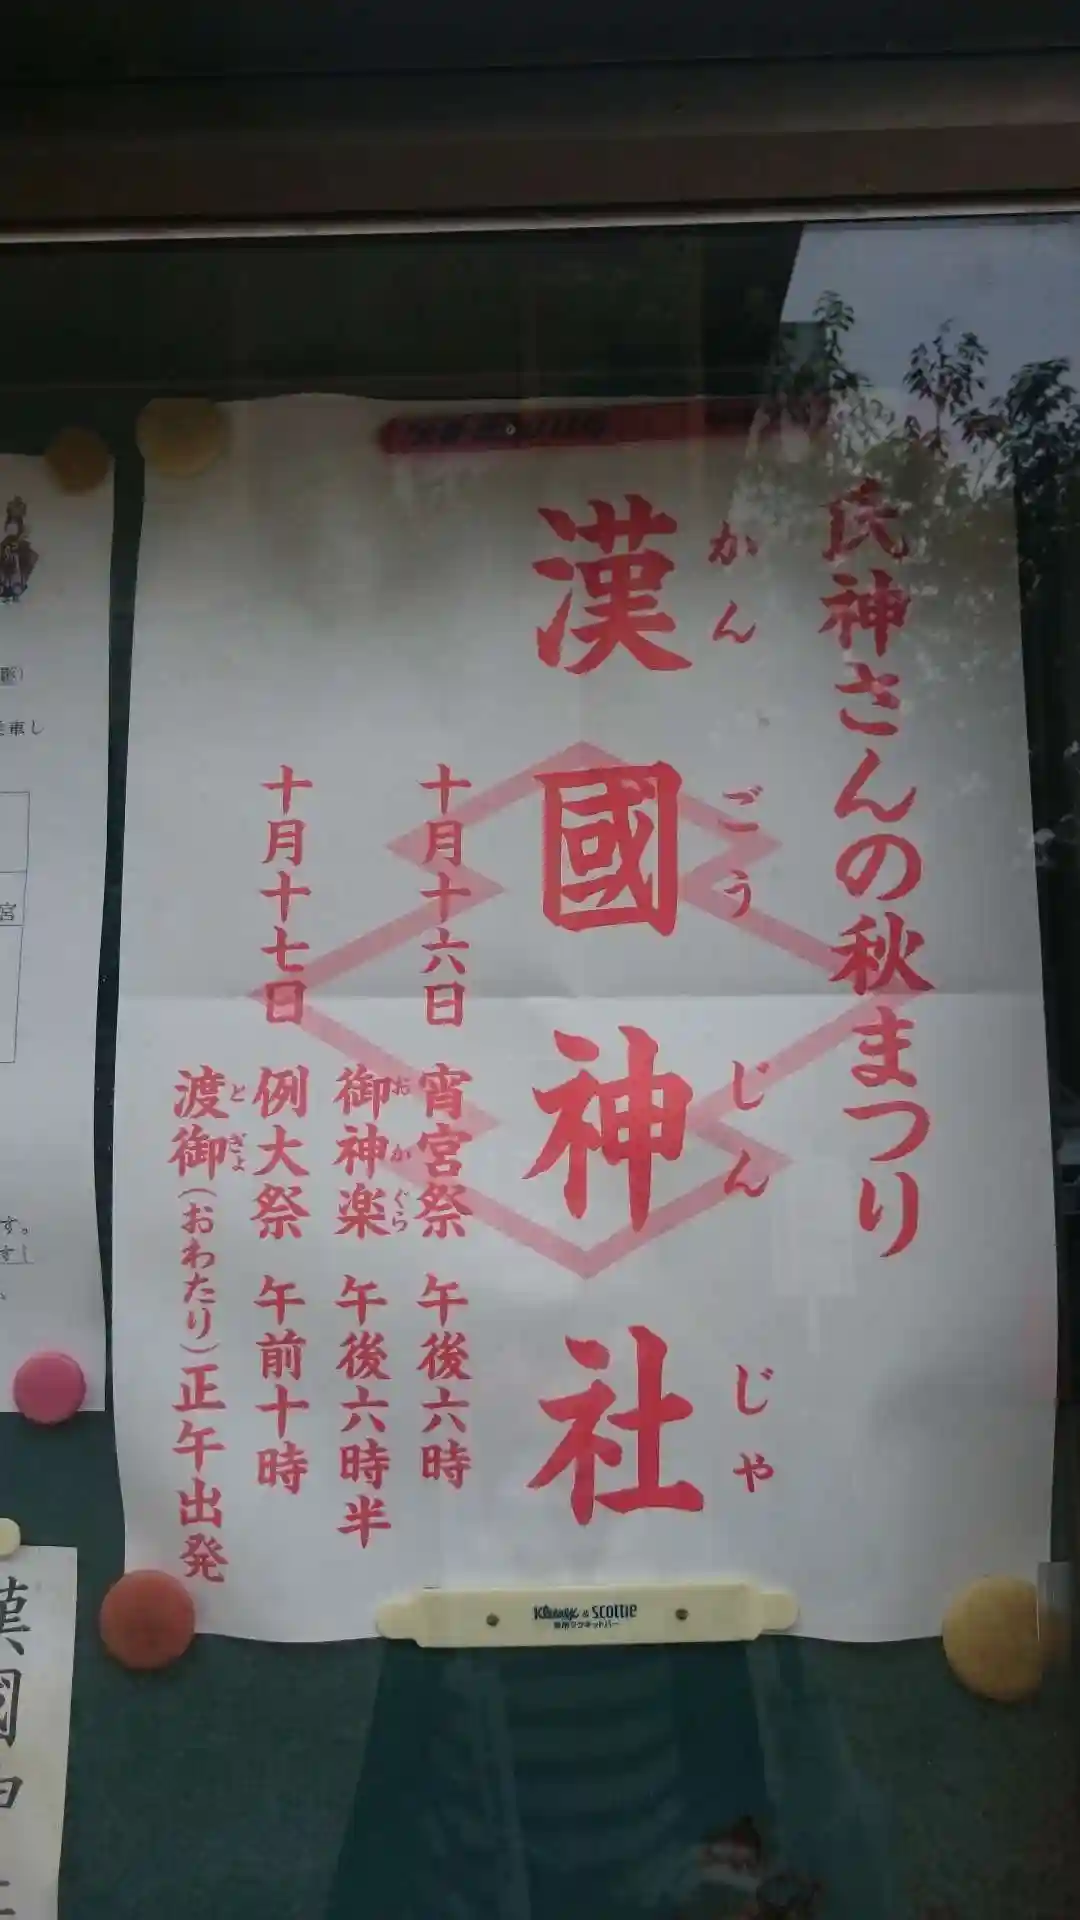 氏神さんの秋まつり
漢國神社
かんごうじんじゃ
十月十六日 宵宮祭 午後六時
御神楽 午後六時半
おかぐら
十月十七日 例大祭 午前十時
渡御(おわたり)正午出発
とぎょ
Kleenex & SCOTTIE
専用マグネットバー